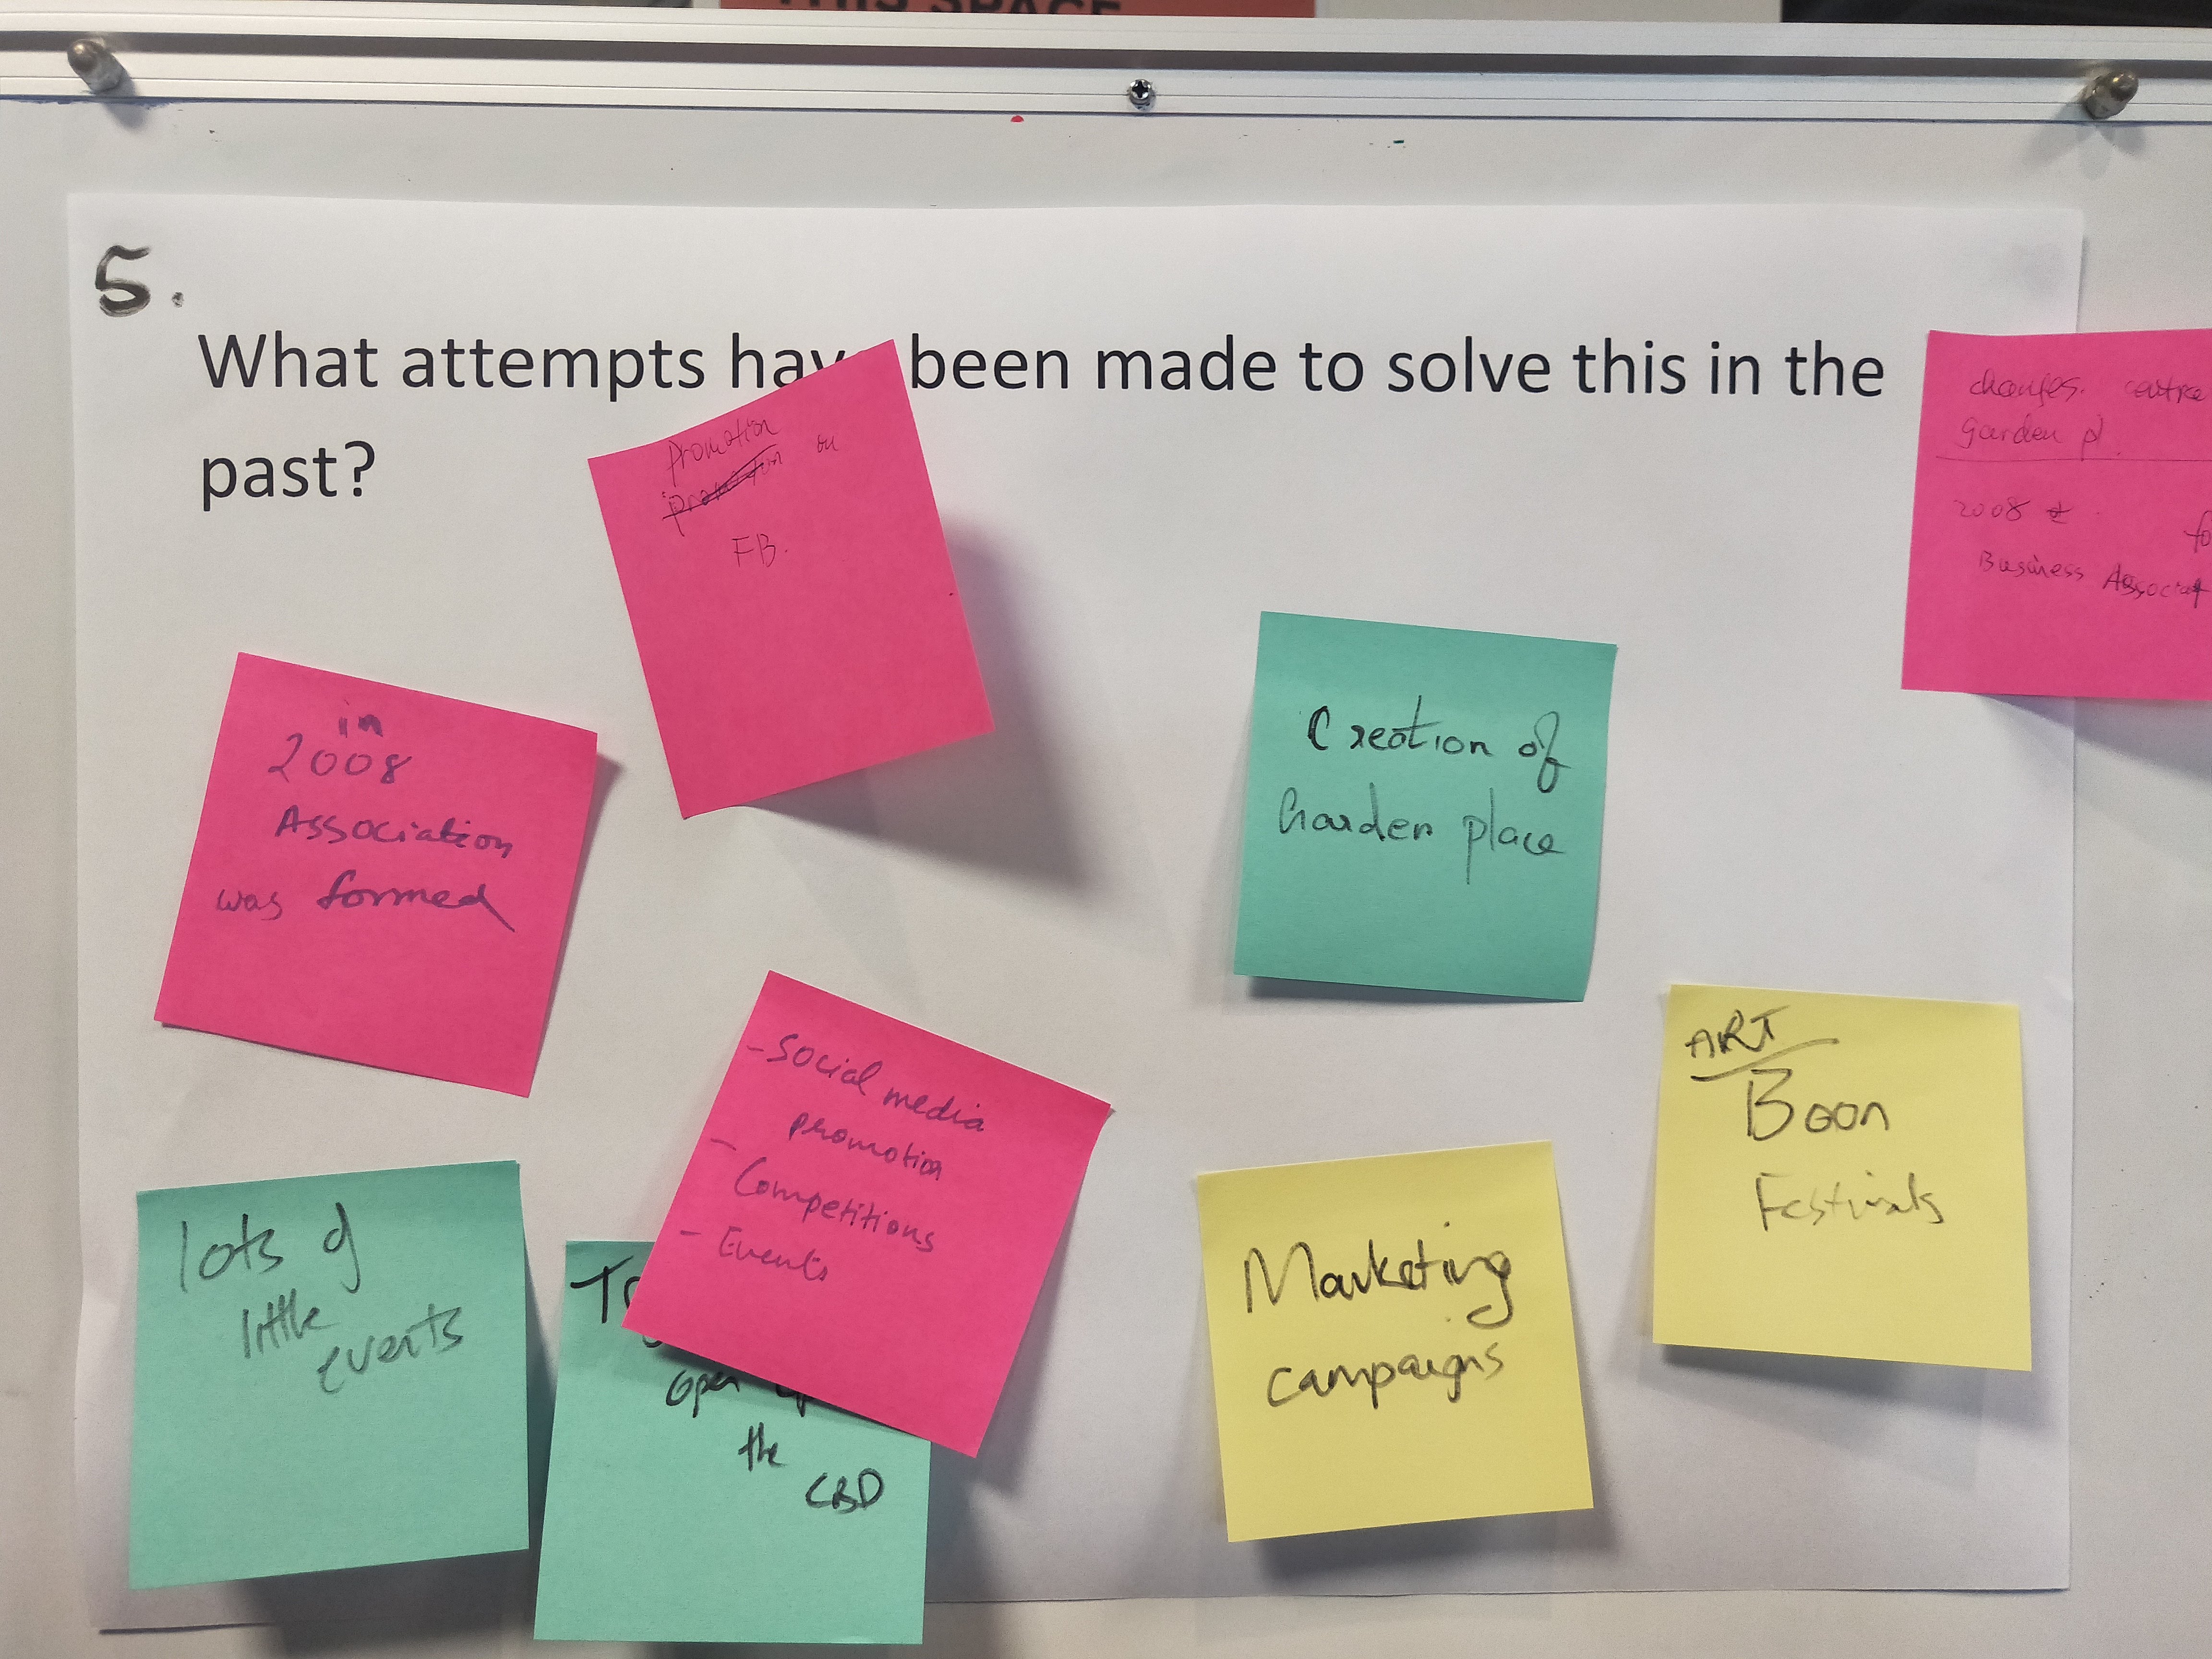 THIS SPACE
5.
What attempts have been made to solve this in the
past?
Promotion
promotion on
FB.
changes. centre
garden pl.
2008
Business Associat
in
2008
Association
was formed
Creation of
Garden place
- Social media
promotion
- Competitions
- Events
ART
Boon
Festivals
lots of
little
events
open up
the
CBD
Marketing
campaigns